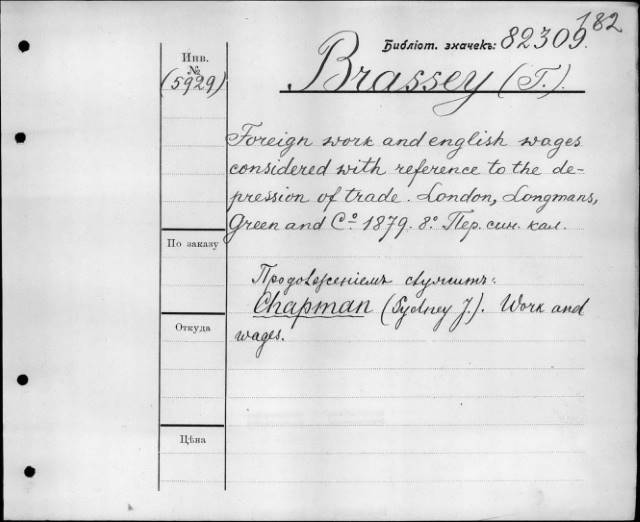 182
Библіот. значекъ: 82309.
Инв.
№
(5929)
Brassey (T.).
Foreign work and english wages
considered with reference to the de-
pression of trade. London, Longmans,
Green and Cº 1879. 8º. Пер. син. кал.
По заказу
Продолженіемъ служитъ:
Chapman (Sydney J.). Work and
wages.
Откуда
Цѣна